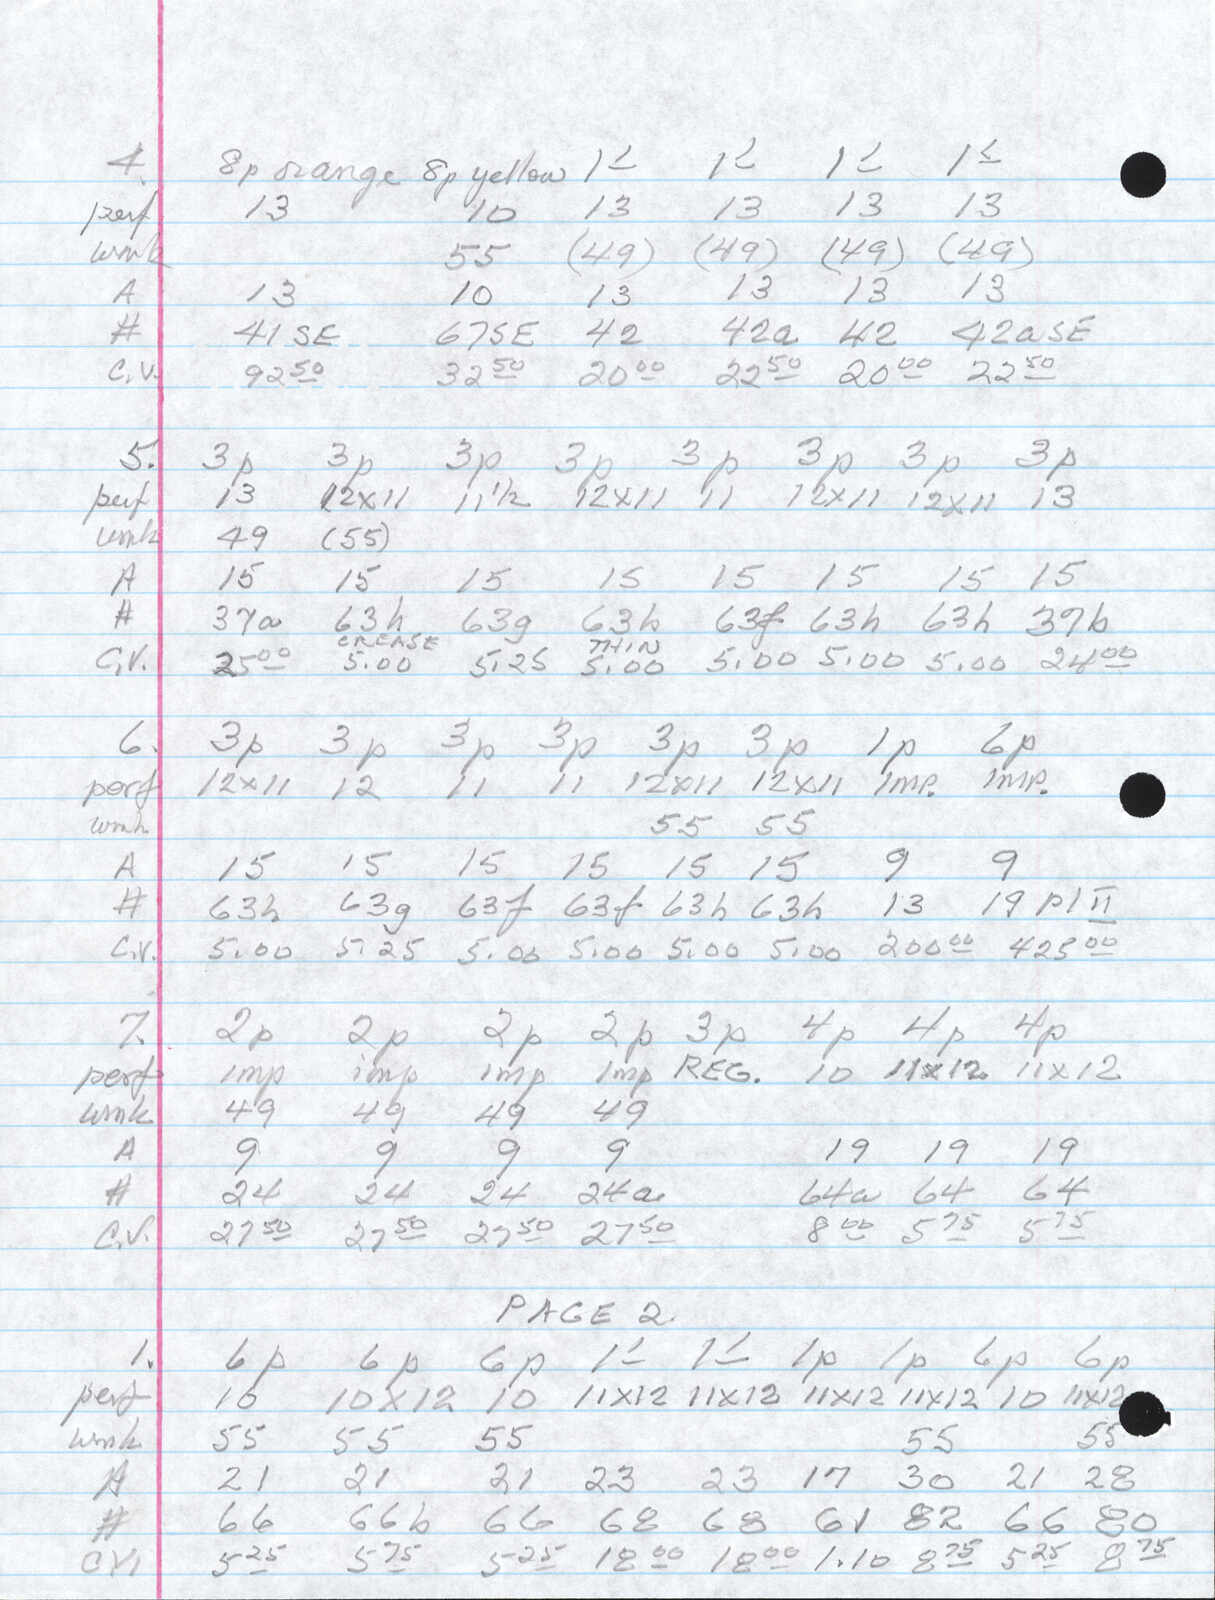 4. 8p orange 8p yellow 1/- 1/- 1/- 1/-
perf 13 10 13 13 13 13
wmk 55 (49) (49) (49) (49)
A 13 10 13 13 13 13
# 41SE 67SE 42 42a 42 42aSE
C.V. 92 50 32 50 20 00 22 50 20 00 22 50
5. 3p 3p 3p 3p 3p 3p 3p 3p
perf 13 12x11 11 1/2 12x11 11 12x11 12x11 13
wmk 49 (55)
A 15 15 15 15 15 15 15 15
# 37a 63h 63g 63h 63f 63h 63h 37b
CREASE THIN
C.V. 25 00 5.00 5.25 5.00 5.00 5.00 5.00 24 00
6. 3p 3p 3p 3p 3p 3p 1p 6p
perf 12x11 12 11 11 12x11 12x11 IMP. IMP.
wmk 55 55
A 15 15 15 15 15 15 9 9
# 63h 63g 63f 63f 63h 63h 13 19 pl II
C.V. 5.00 5.25 5.00 5.00 5.00 5.00 200 00 425 00
7. 2p 2p 2p 2p 3p 4p 4p 4p
perf imp imp imp imp REG. 10 11x12 11x12
wmk 49 49 49 49
A 9 9 9 9 19 19 19
# 24 24 24 24a 64a 64 64
C.V. 27 50 27 50 27 50 27 50 8 00 5 75 5 75
PAGE 2
1. 6p 6p 6p 1/- 1/- 1p 1p 6p 6p
perf 10 10x12 10 11x12 11x12 11x12 11x12 10 11x12
wmk 55 55 55 55 55
A 21 21 21 23 23 17 30 21 28
# 66 66b 66 68 68 61 82 66 80
C.V. 5 25 5 75 5 25 18 00 18 00 1.10 8 75 5 25 8 75